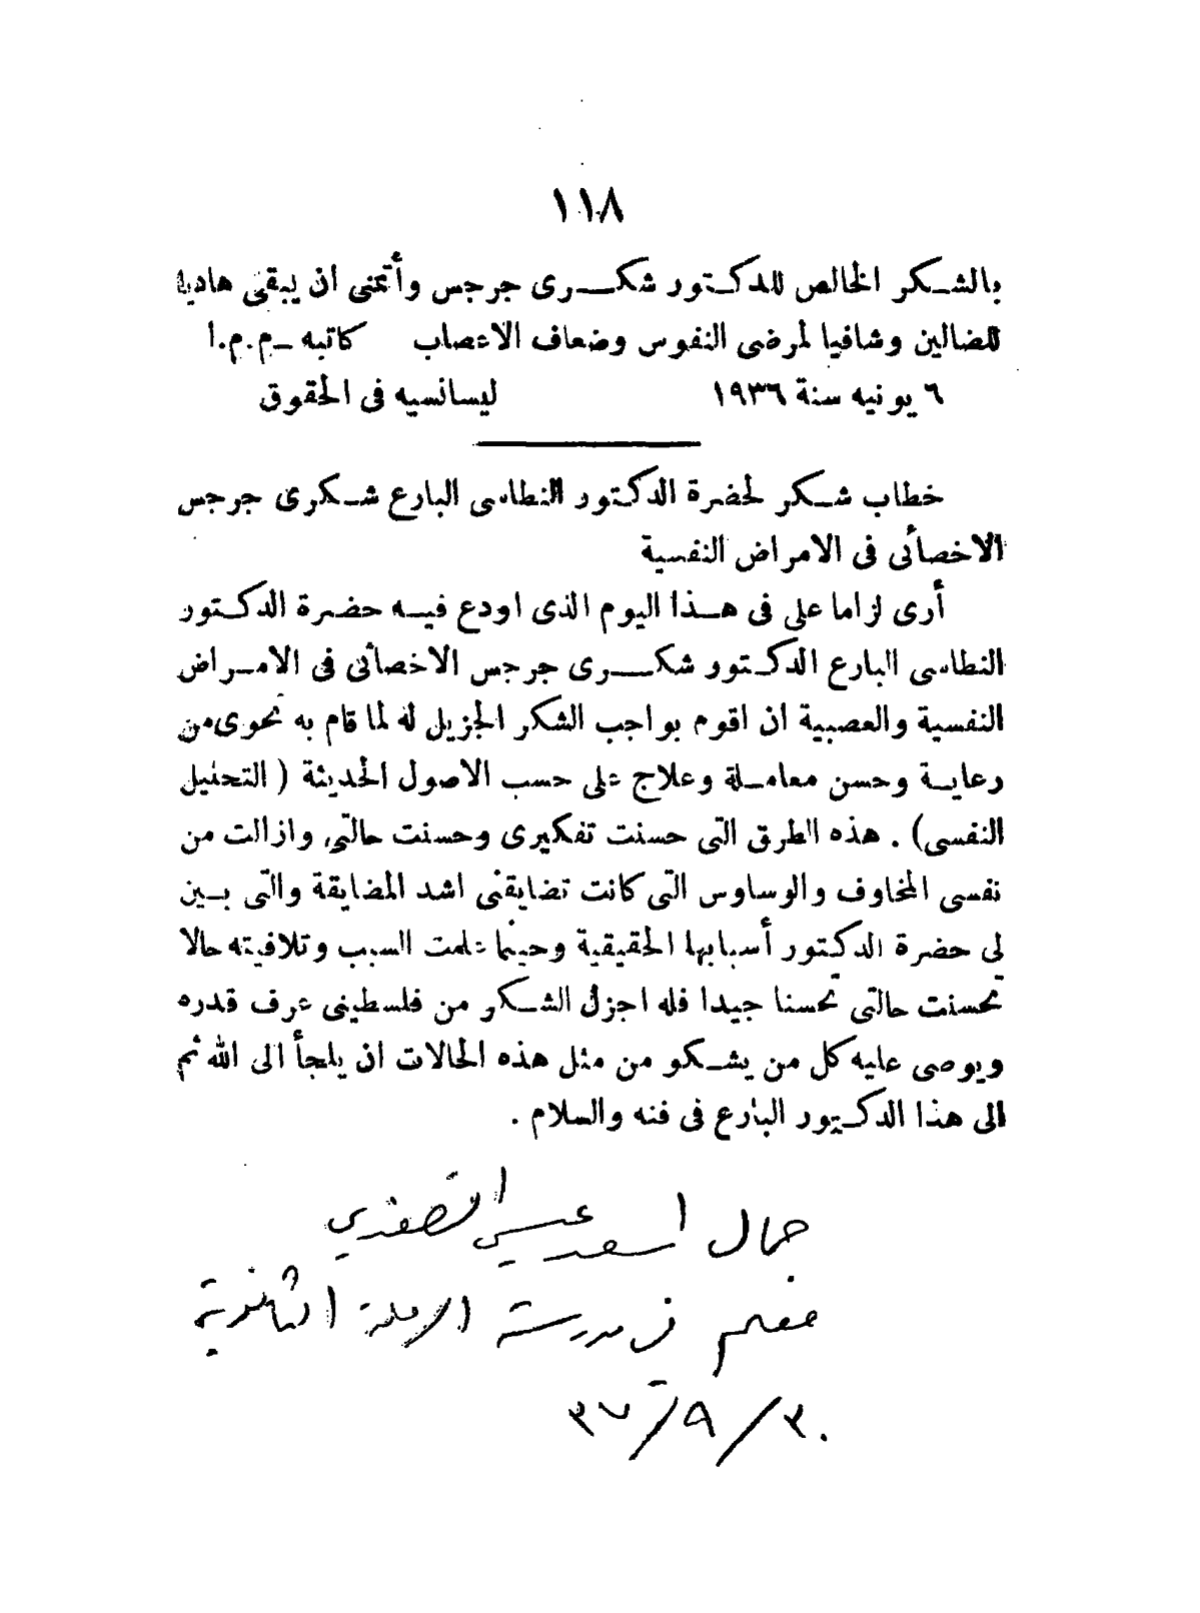 ١١٨
بالشكر الخالص للدكتور شكرى جرجس وأتمنى ان يبقى هاديا
للضالين وشافيا لمرضى النفوس وضعاف الاعصاب كاتبه – م.م.ا
٦ يونيه سنة ١٩٣٦ ليسانسيه فى الحقوق
خطاب شكر لحضرة الدكتور النطاسى البارع شكرى جرجس
الاخصائى فى الامراض النفسية
أرى لزاما على فى هذا اليوم الذى اودع فيه حضرة الدكتور
النطاسى البارع الدكتور شكرى جرجس الاخصائى فى الامراض
النفسية والعصبية ان اقوم بواجب الشكر الجزيل له لما قام به نحوى من
رعاية وحسن معاملة وعلاج على حسب الاصول الحديثة ( التحليل
النفسى) . هذه الطرق التى حسنت تفكيرى وحسنت حالتى وازالت من
نفسى المخاوف والوساوس التى كانت تضايقنى اشد المضايقة والتى بين
لى حضرة الدكتور أسبابها الحقيقية وحينما علمت السبب وتلافيته حالا
تحسنت حالتى تحسنا جيدا فله اجزل الشكر من فلسطينى عرف قدره
ويوصى عليه كل من يشكو من مثل هذه الحالات ان يلجأ الى الله ثم
الى هذا الدكتور البارع فى فنه والسلام .
جمال اسعد عيسى الصفدي
معلم في مدرسة الرملة الثانوية
٣٠/٩/٣٧